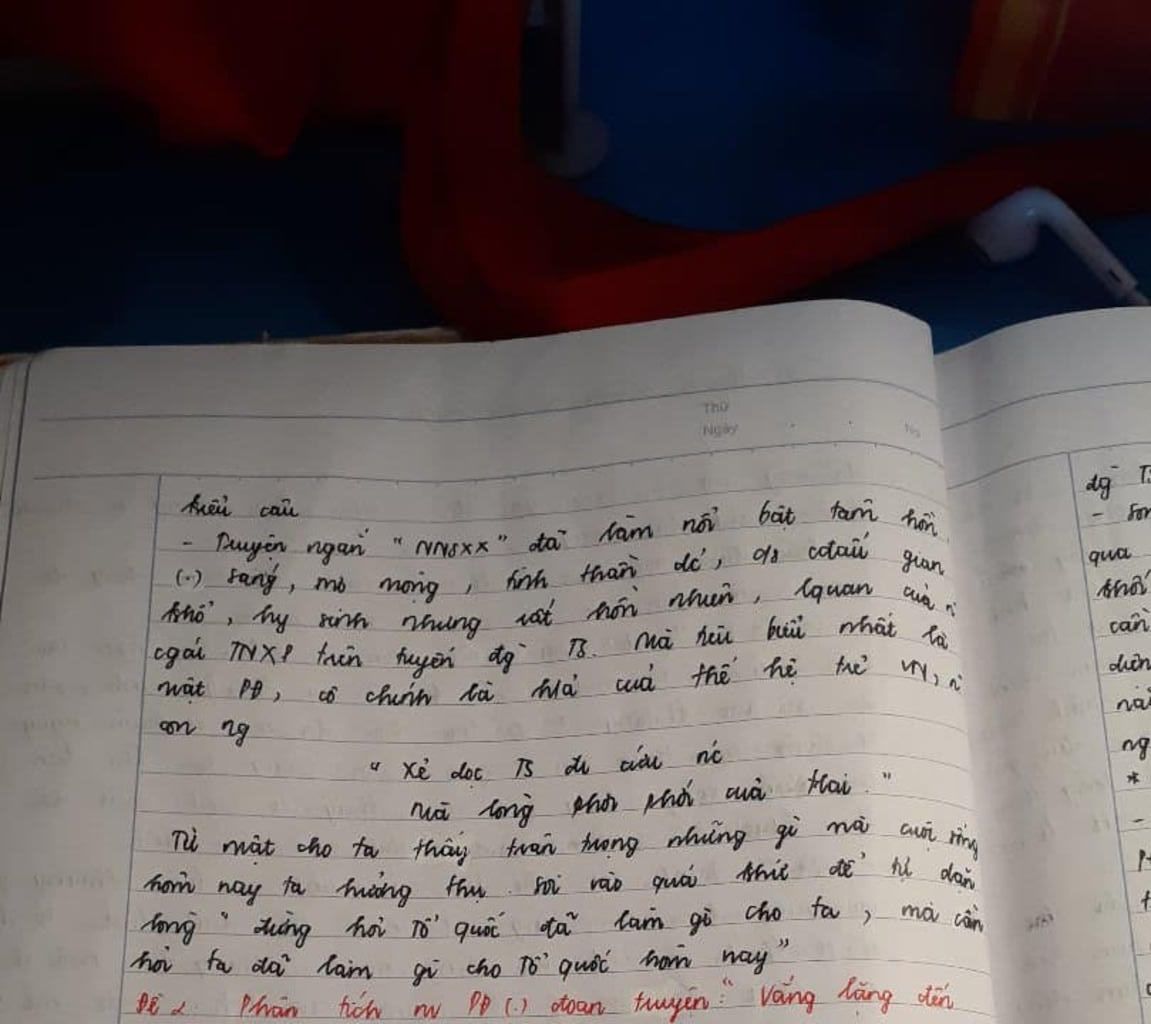 Thứ
Ngày
No
kiểu câu
- Truyện ngắn "NNSXX" đã làm nổi bật tâm hồn
(.) sáng, mơ mộng, tinh thần dc, c/s cđấu gian
khổ, hy sinh nhưng rất hồn nhiên, lquan của n
cgái TNXP trên tuyến đg TS. Mà tiêu biểu nhất là
nvật PĐ, cô chính là h/a của thế hệ trẻ VN, n
con ng
"Xẻ dọc TS đi cứu nc
Mà lòng phơi phới của tlai."
Từ nvật cho ta thấy trân trọng những gì mà cuộc sống
hôm nay ta hưởng thụ. Soi vào quá khứ để tự dặn
lòng "đừng hỏi Tổ quốc đã làm gì cho ta, mà cần
hỏi ta đã làm gì cho Tổ quốc hôm nay"
Đề 2. Phân tích nv PĐ (.) đoạn truyện: "Vắng lặng đến
đg
-
qua
khổ
cần
ng
*
-